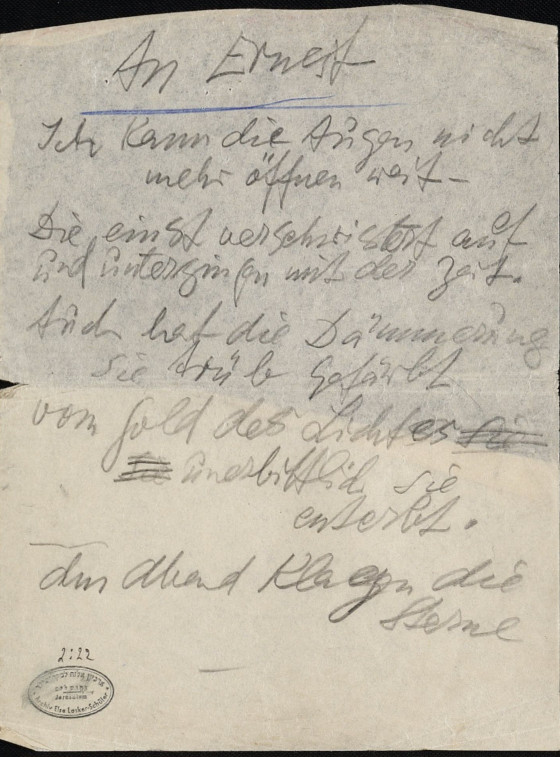 An Ernest
Ich kann die Augen nicht
mehr öffnen weit –
Die einst verschwistert auf
und untergingen mit der Zeit.
Auch hat die Dämmerung
sie trüb gefärbt
vom Gold des Lichtes
unerbittlich sie
enterbt.
Am Abend klagen die
Sterne
2:22
Jerusalem
Archiv Else Lasker-Schüler